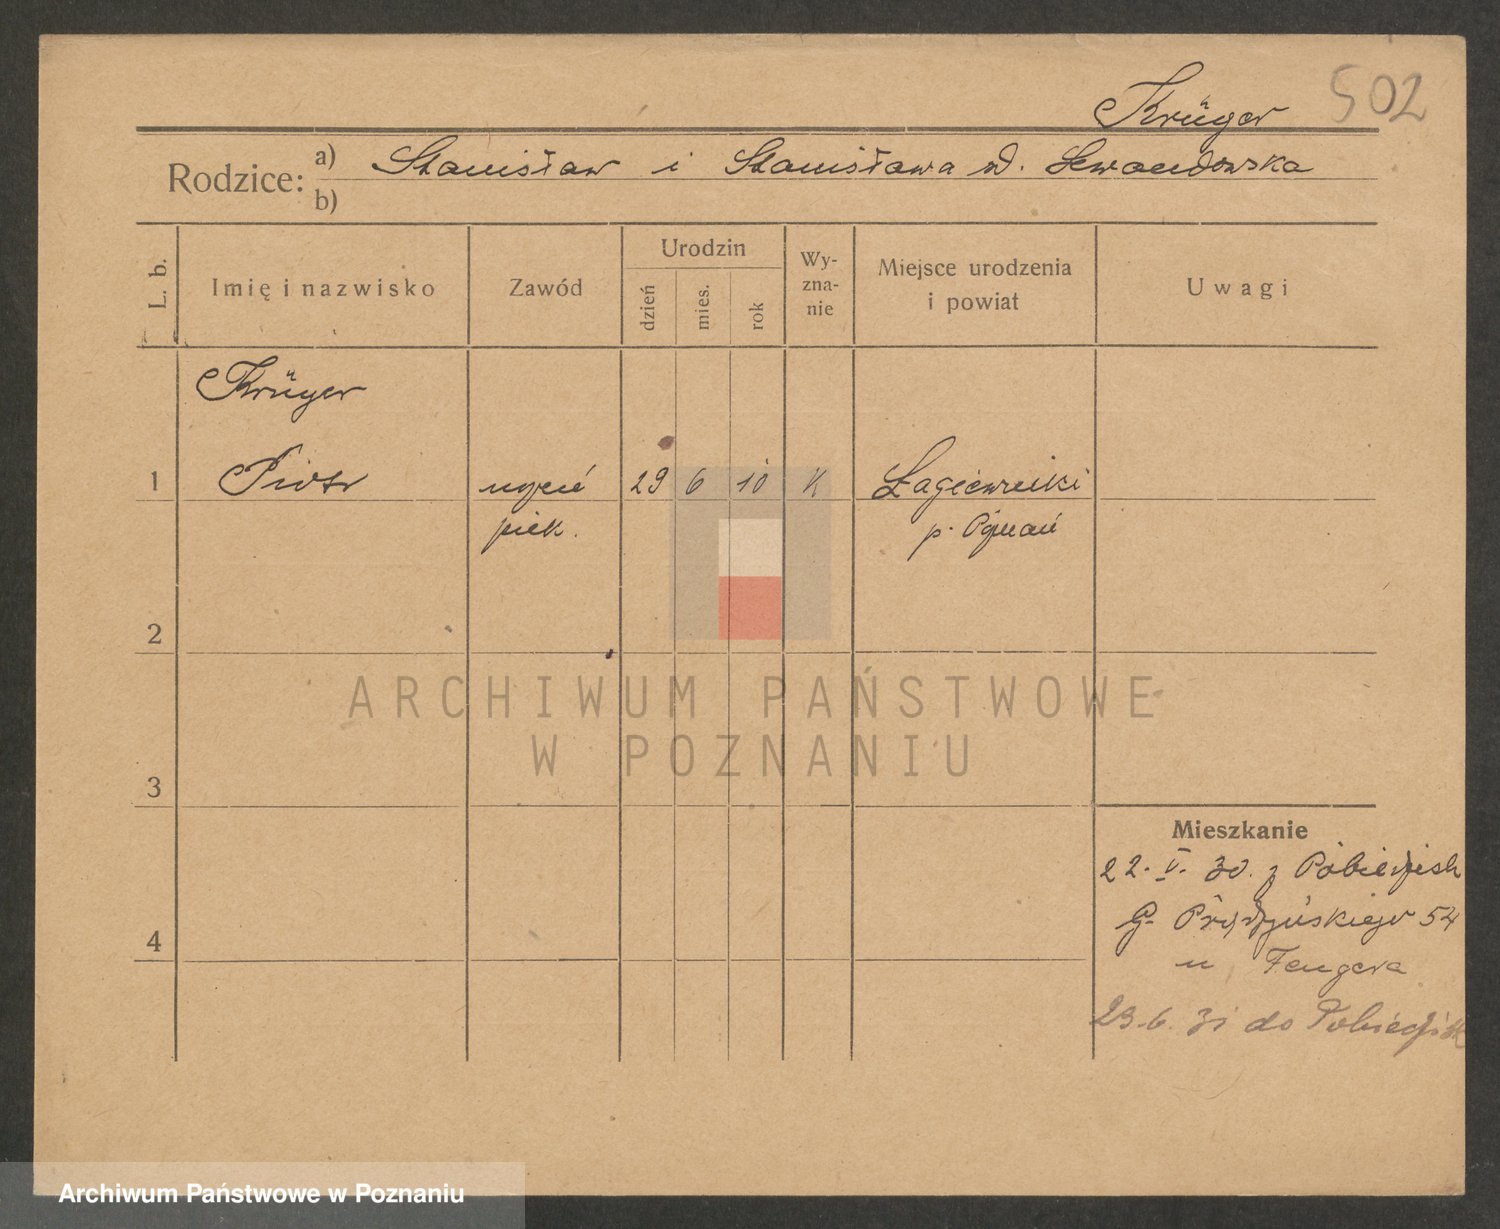 Krüger 502
Rodzice: a) Stanisław i Stanisława d. Lewandowska
b)
L. b.
Imię i nazwisko
Zawód
Urodzin
dzień
mies.
rok
Wy-
zna-
nie
Miejsce urodzenia
i powiat
Uwagi
Krüger
1 Piotr uczeń 29 6 10 K Łagiewniki
piek. p. Poznań
2
ARCHIWUM PAŃSTWOWE
W POZNANIU
3
Mieszkanie
22. V. 30. z Pobiedzisk
G. Prądzyńskiego 54
u Fengera
4
23.6.31 do Pobiedzisk
Archiwum Państwowe w Poznaniu